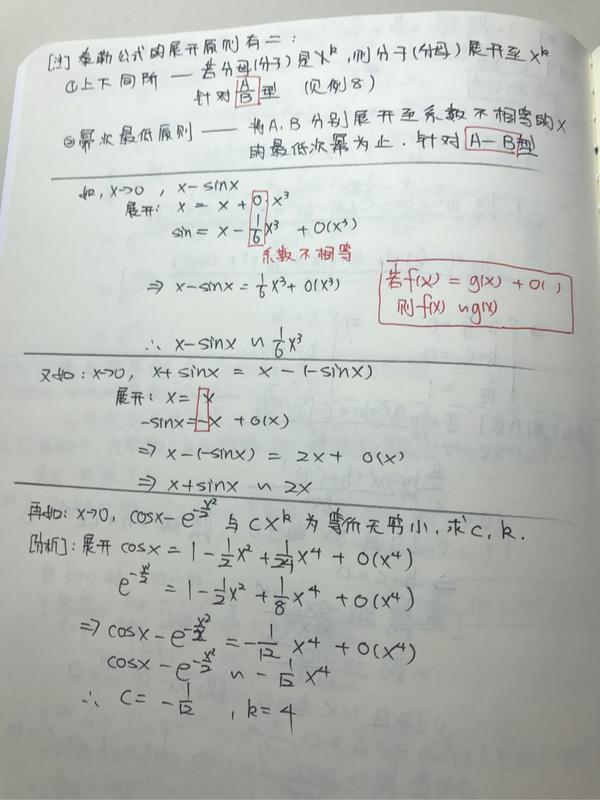 [注] 泰勒公式的展开原则有二:
①上下同阶 —— 若分母(分子)是X^k,则分子(分母)展开至X^k
针对 A/B 型 (见例8)
②幂次最低原则 —— 将A、B分别展开至系数不相等的X
的最低次幂为止. 针对 A-B型
如, x→0, x-sinx
展开: x = x + 0·x³
sin = x - 1/6 x³ + 0(x³)
系数不相等
⇒ x-sinx = 1/6 x³ + 0(x³)
若f(x) = g(x) + 0( )
则f(x) ~ g(x)
∴ x-sinx ~ 1/6 x³
又如: x→0, x+sinx = x-(-sinx)
展开: x = x
-sinx = -x + 0(x)
⇒ x-(-sinx) = 2x + 0(x)
⇒ x+sinx ~ 2x
再如: x→0, cosx - e^(-x²/2) 与 cx^k 为等价无穷小, 求c, k.
[分析]: 展开 cosx = 1 - 1/2 x² + 1/24 x⁴ + 0(x⁴)
e^(-x²/2) = 1 - 1/2 x² + 1/8 x⁴ + 0(x⁴)
⇒ cosx - e^(-x²/2) = -1/12 x⁴ + 0(x⁴)
cosx - e^(-x²/2) ~ -1/12 x⁴
∴ c = -1/12 , k = 4